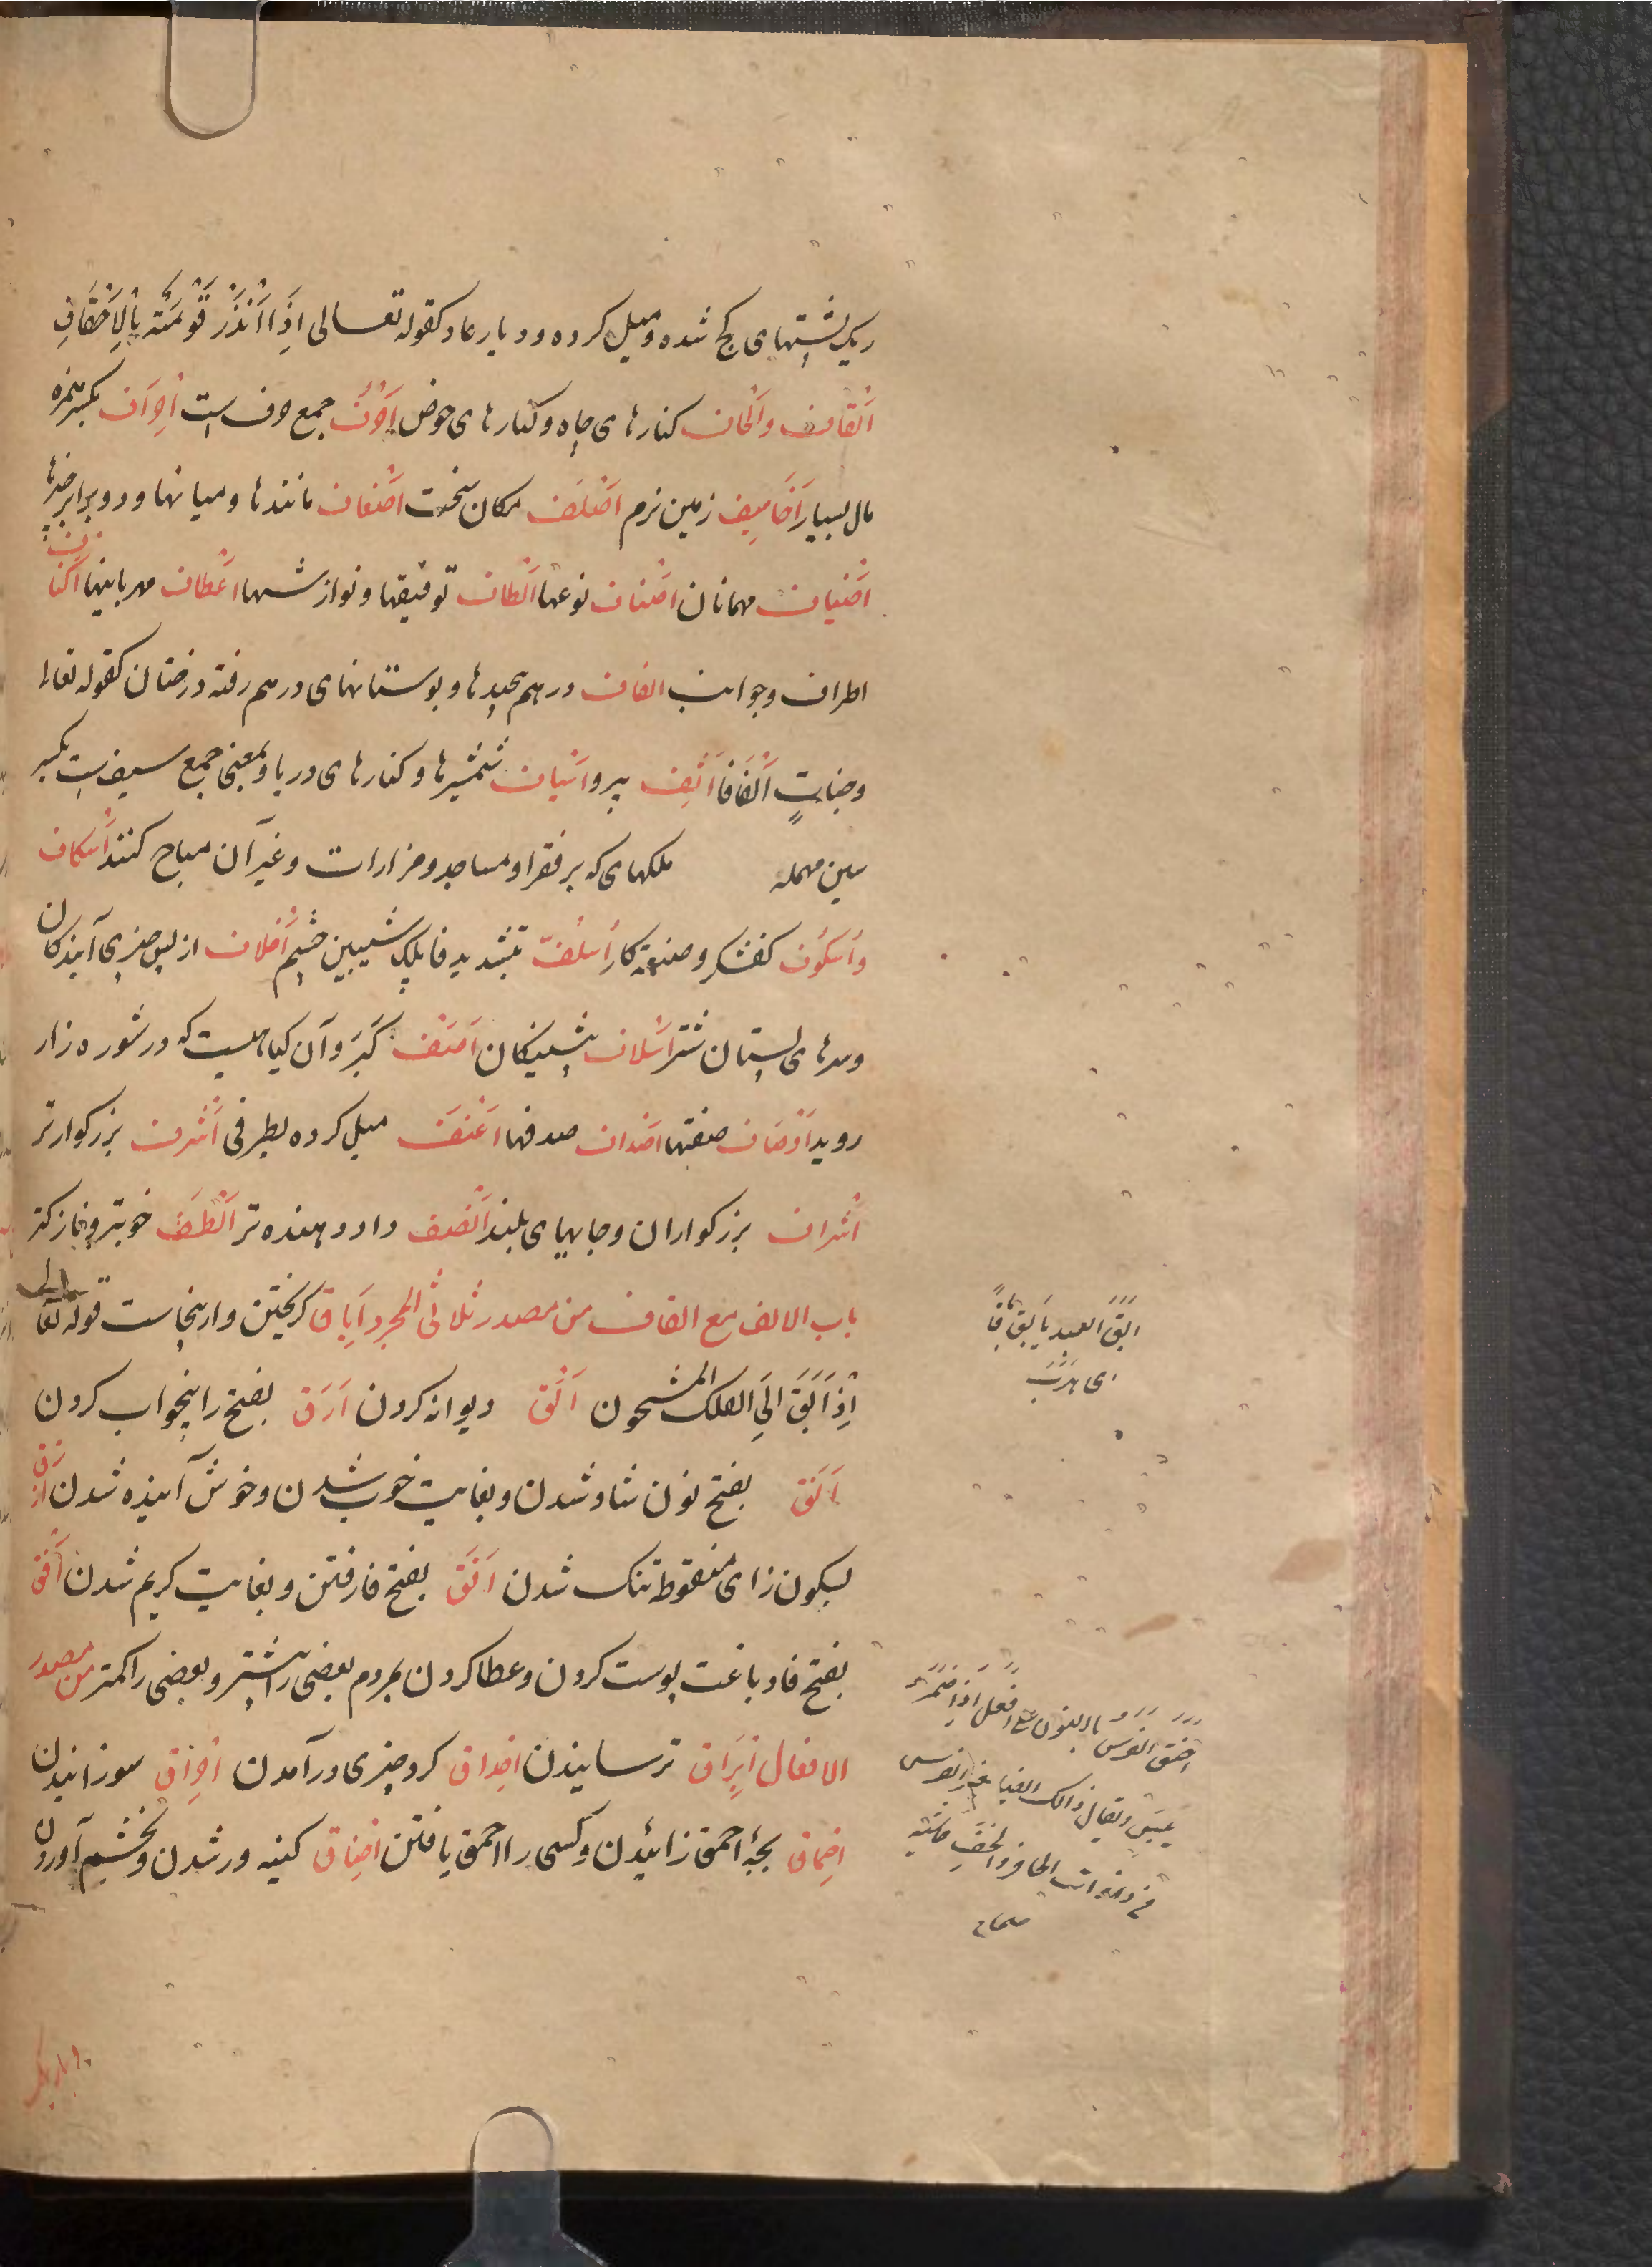 ریک پشتهای کج شده و میل کرده و دیار عاد کقوله تعالی اِذَا اَنْذَرَ قَوْمَهُ بِالْاَحْقَافِ
اَلْقاف و اَلْحاف کنارهای چاه و کنارهای حوض اَوْف جمع وف است اِواف بکسر همزه
مال بسیار اَخَامِیف زمین نرم اَضْلَف مکان سخت اَضْعاف مانندها و میانها و دو برابر
اَضْیاف مهمانان اَصْناف نوعها اَلْطاف توفیقها و نوازشها اَعْطاف مهربانیها اَکْناف
اطراف و جوانب الفاف درهم پیچیدها و بوستانهای درهم رفته درختان کقوله تعالی
وجناتٍ اَلْفَافا اَثِف پیرو اَسْیاف شمشیرها و کنارهای دریا و بمعنی جمع سیف است بکسر
سین مهمله ملکهای که بر فقرا و مساجد و مزارات و غیر آن مباح کنند اُسْکاف
و اُسْکُوف کفشکر و صنعتکار اُسْلُفّ بتشدید فا پلک شیبین چشم اَخْلاف از پس چیزی آیندکان
و سرهای پستان شتر اَسْلاف پیشینیکان اَصَف کَبَر و آن کیاهیست که در شوره زار
روید اَوْصاف صفتها اَصْداف صدفها اَغْنَف میل کرده بطرفی اَشْرَف بزرکوارتر
اَشْراف بزرکواران و جایهای بلند اَنْصَف داد دهنده تر اَلْطَف خوبتر و نازکتر
باب الالف مع القاف من مصدر ثلاثی المجرد اِباق کریختن و ازینجاست قوله تعالی
اِذْ اَبَقَ اِلَی الفلک المشحون اَلْق دیوانه کردن اَرَق بفتح را بیخواب کردن
اَنَق بفتح نون شاد شدن و بغایت خوب شدن و خوش آینده شدن اَزْق
بسکون زای منقوطه تنک شدن اَفَق بفتح فا رفتن و بغایت کریم شدن اَفَق
بفتح فا دباغت پوست کردن و عطا کردن بمردم بعضی را بیشتر و بعضی را کمتر من مصدر
الافعال اِبْراق ترسانیدن اِحْداق کرد چیزی درآمدن اِحْراق سوزانیدن
اِحْماق بچهٔ احمق زائیدن و کسی را احمق یافتن اِحْناق کینه ور شدن و بخشم آوردن
اَبَقَ العبد یَابَق اِباقاً
ای هَرَبَ
صحاح